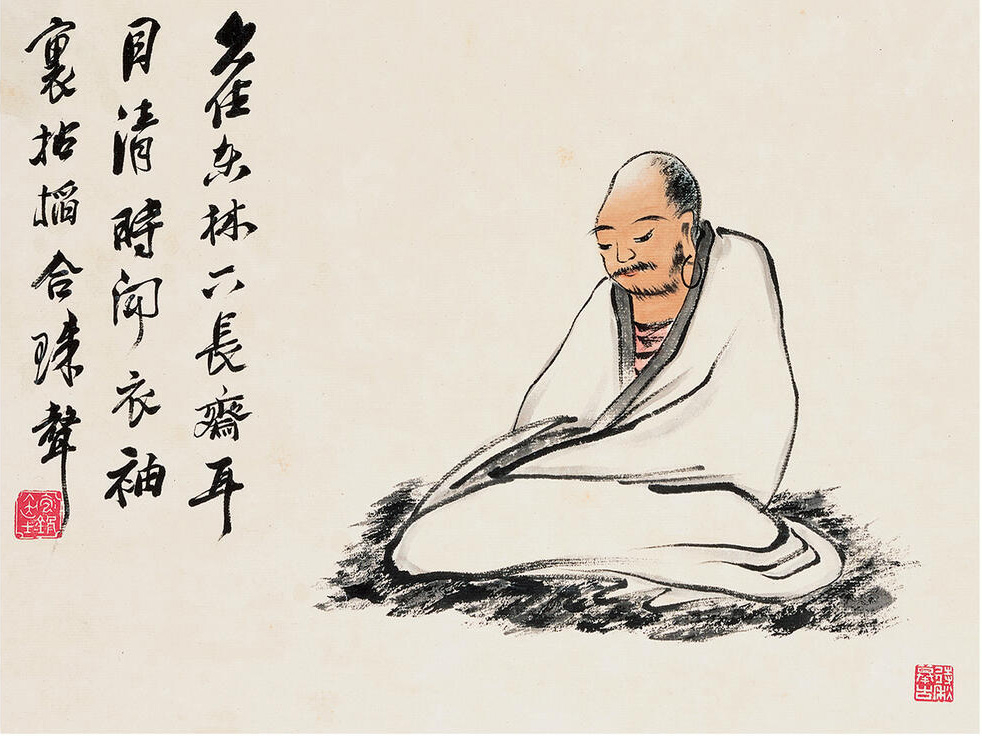 久住東林下長齋耳
目清時聞衣袖
裏拈搯合珠聲